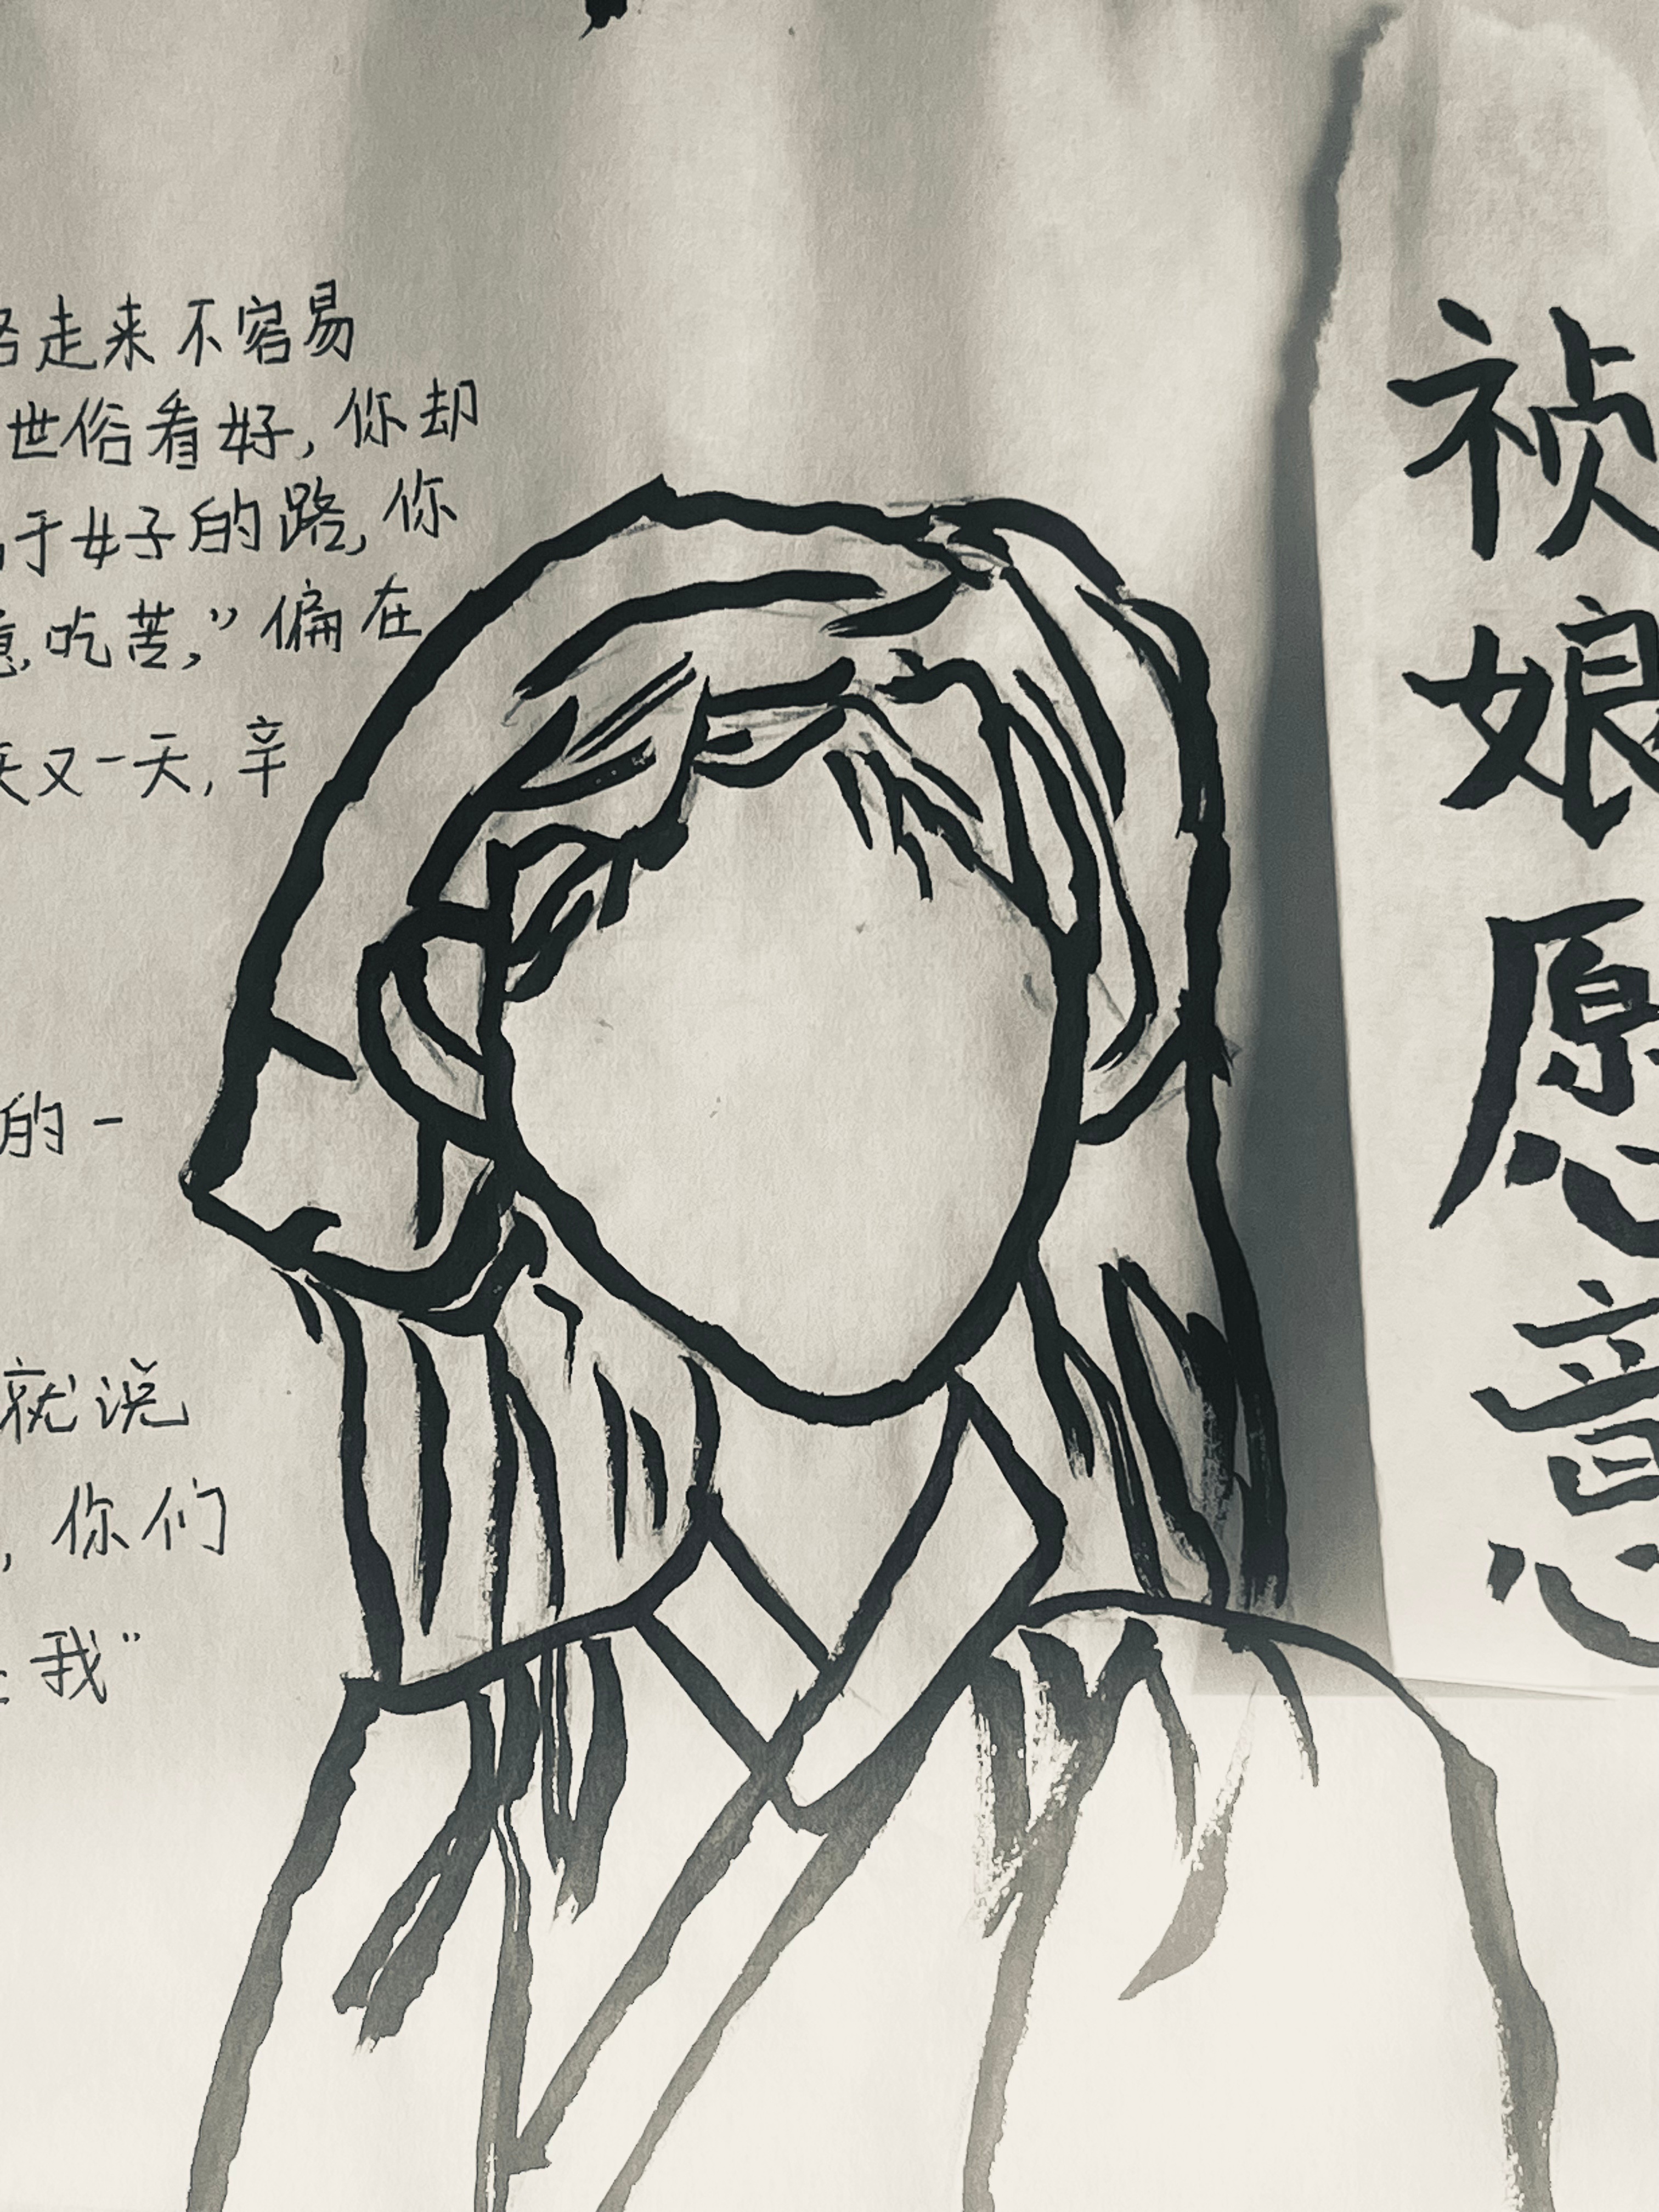 走来不容易
世俗看好,你却
于好的路,你
吃苦,”偏在
又一天,辛
的一
就说
,你们
我”
祯娘愿意